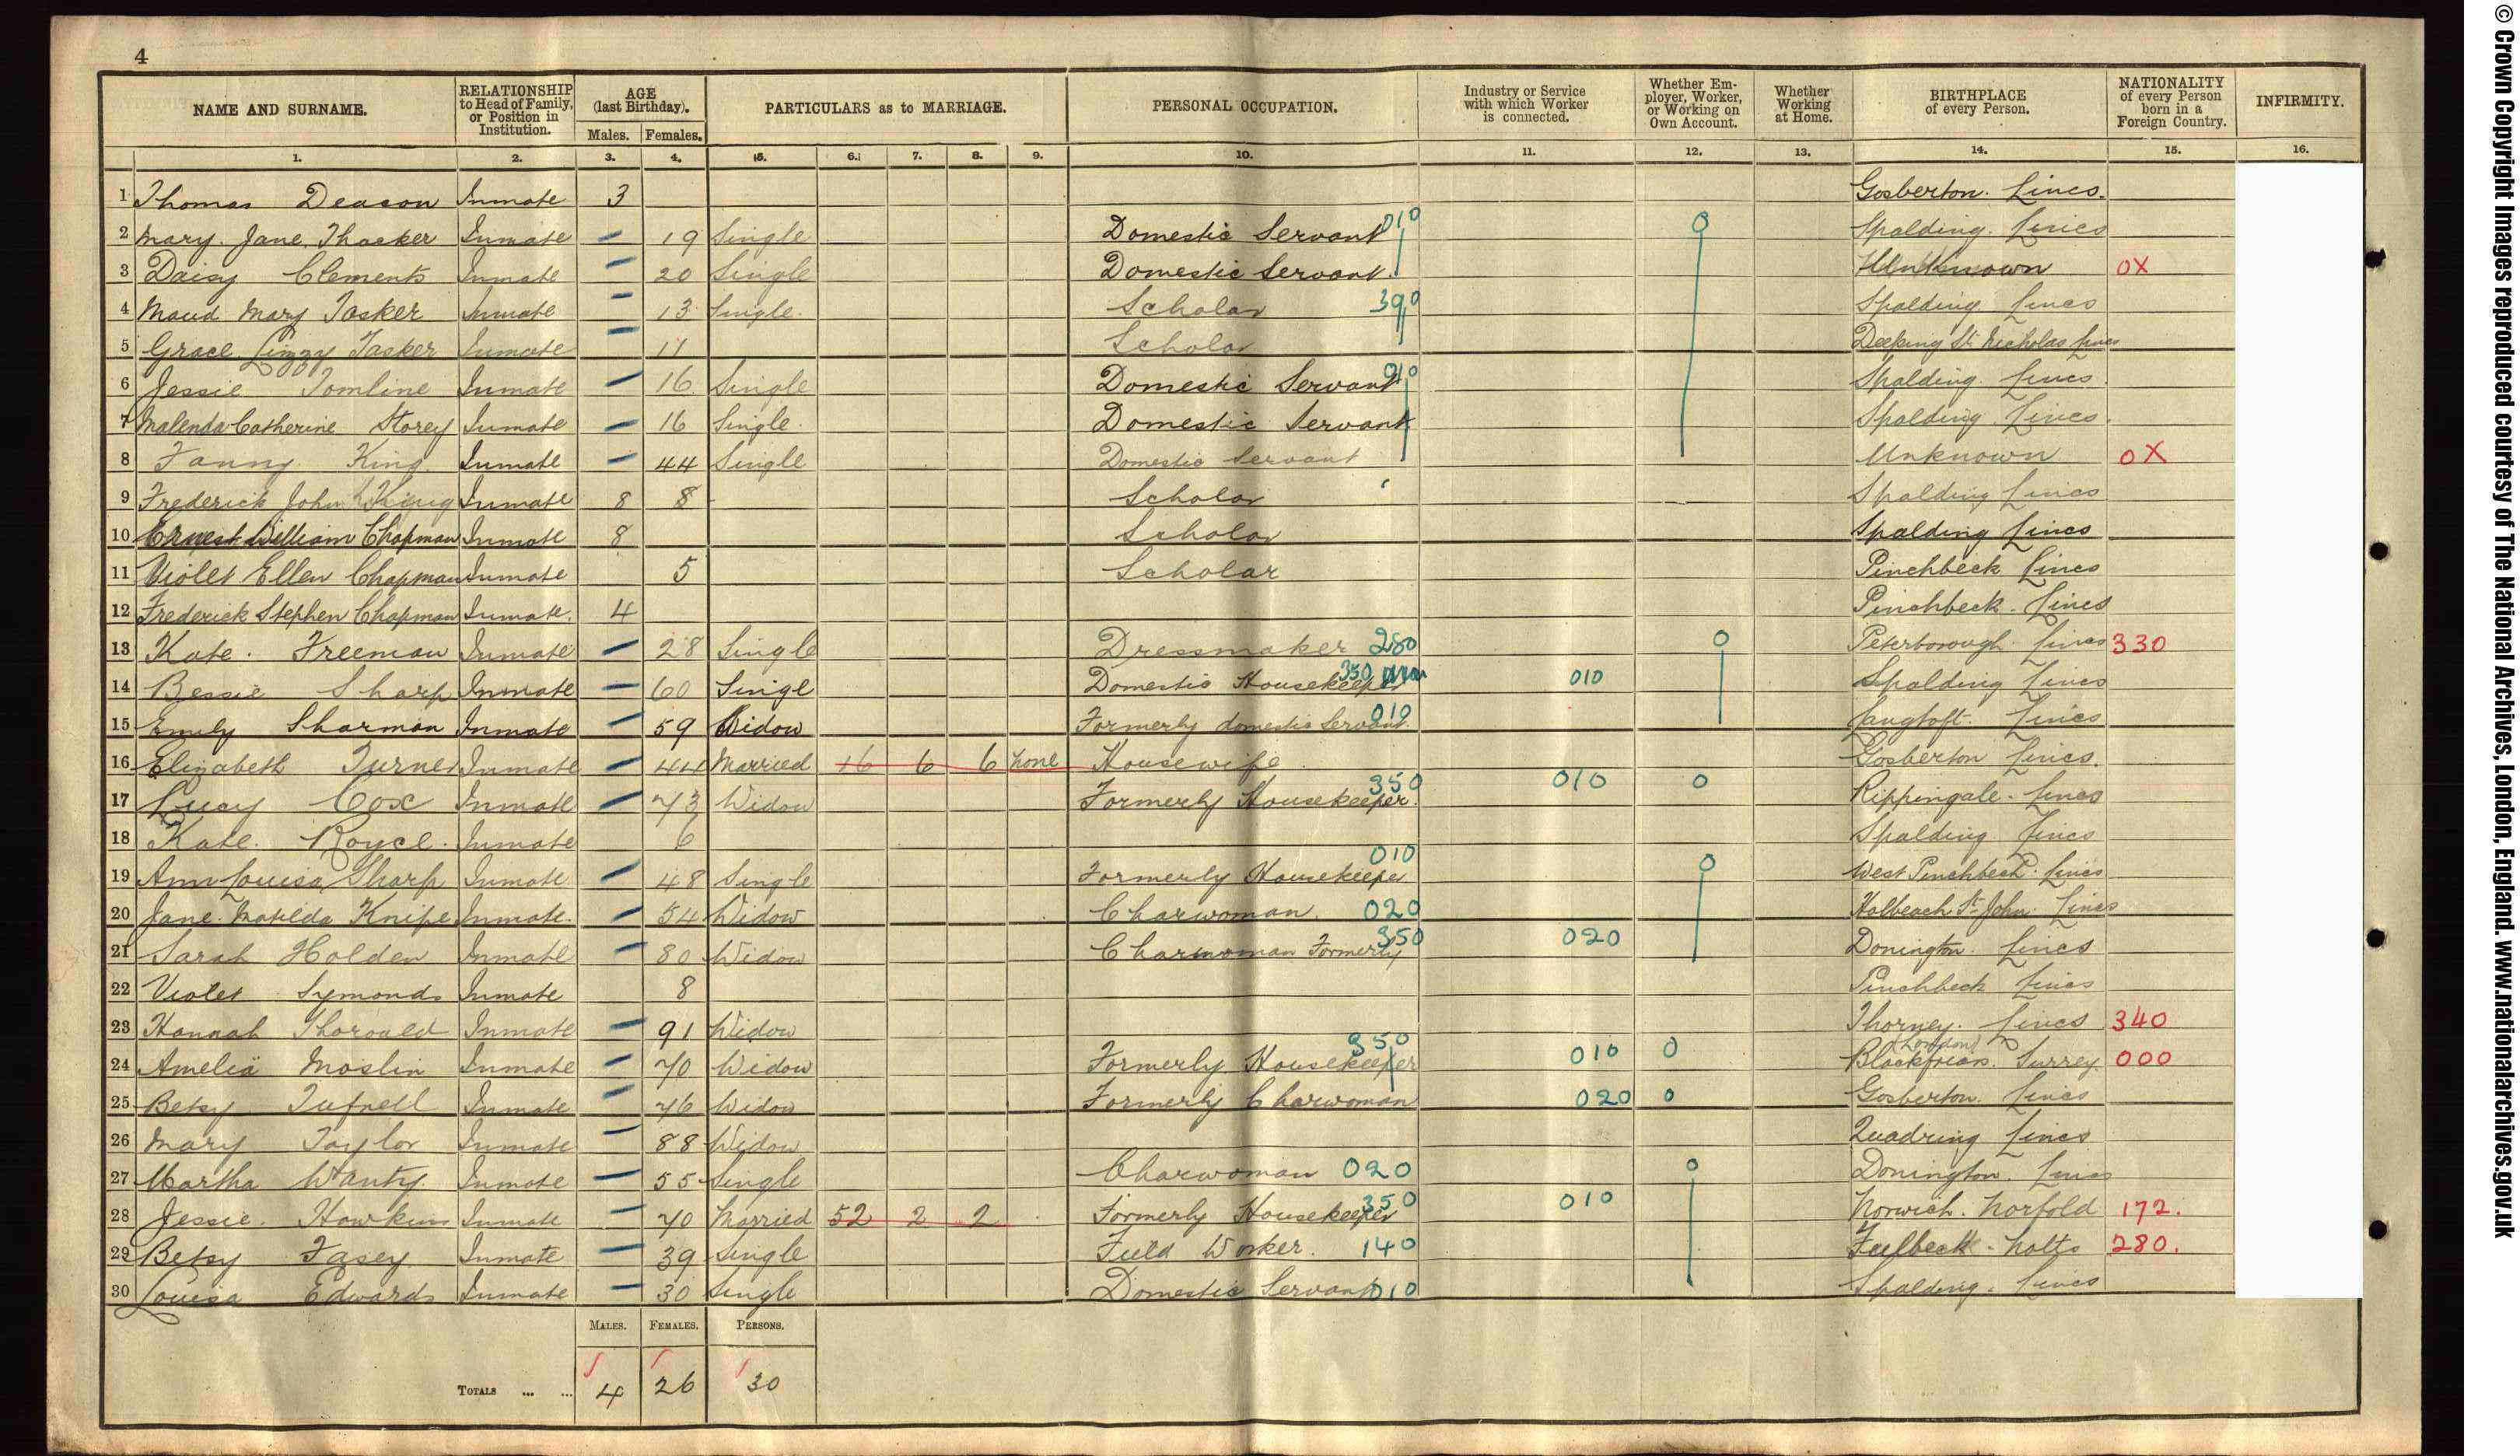 4
NAME AND SURNAME. RELATIONSHIP to Head of Family, or Position in Institution. AGE (last Birthday). Males. Females. PARTICULARS as to MARRIAGE. PERSONAL OCCUPATION. Industry or Service with which Worker is connected. Whether Employer, Worker, or Working on Own Account. Whether Working at Home. BIRTHPLACE of every Person. NATIONALITY of every Person born in a Foreign Country. INFIRMITY.
1. 2. 3. 4. 5. 6. 7. 8. 9. 10. 11. 12. 13. 14. 15. 16.
1 Thomas Deacon Inmate 3 Gosberton. Lincs.
2 Mary Jane Thacker Inmate 19 Single Domestic Servant 010 0 Spalding. Lincs
3 Daisy Clements Inmate 20 Single Domestic Servant. Unknown OX
4 Maud Mary Tasker Inmate 13 Single. Scholar 390 Spalding Lincs
5 Grace Lizzy Tasker Inmate 11 Scholar Deeping St. Nicholas Lincs
6 Jessie Tomline Inmate 16 Single Domestic Servant 010 Spalding Lincs
7 Malenda Catherine Storey Inmate 16 Single. Domestic Servant Spalding Lincs.
8 Fanny King Inmate 44 Single Domestic Servant Unknown OX
9 Frederick John King Inmate 8 8 Scholar Spalding Lincs
10 Ernest William Chapman Inmate 8 Scholar Spalding Lincs
11 Violet Ellen Chapman Inmate 5 Scholar Pinchbeck Lincs
12 Frederick Stephen Chapman Inmate. 4 Pinchbeck. Lincs
13 Kate. Freeman Inmate 28 Single Dressmaker 280 0 Peterborough Lincs 330
14 Bessie Sharp Inmate 60 Singl Domestic Housekeeper 350 010 Spalding Lincs
15 Emily Sharman Inmate 59 Widow Formerly domestic Servant. 010 Langtoft. Lincs
16 Elizabeth Turner Inmate 44 Married 16 6 6 none Housewife. Gosberton Lincs.
17 Lucy Cox Inmate 73 Widow Formerly Housekeeper. 350 010 0 Rippingale. Lincs
18 Kate. Royce. Inmate 6 Spalding Lincs
19 Ann Louisa Sharp Inmate 48 Single Formerly Housekeeper 010 0 West Pinchbeck. Lincs
20 Jane Matilda Knipe Inmate. 54 Widow Charwoman. 020 Holbeach St. John. Lincs
21 Sarah Holden Inmate 80 Widow Charwoman Formerly 350 020 Donington. Lincs
22 Violet Symonds Inmate 8 Pinchbeck Lincs
23 Hannah Thorould Inmate 91 Widow Thorney. Lincs 340
24 Amelia Moslin Inmate 70 Widow Formerly Housekeeper 350 010 0 Blackfriars. (London) Surrey 000
25 Betsy Tufnell Inmate 76 Widow Formerly Charwoman 020 0 Gosberton. Lincs
26 Mary Taylor Inmate 88 Widow Quadring Lincs
27 Martha Wanty. Inmate 55 Single Charwoman 020 0 Donington. Lincs
28 Jessie. Hawkins Inmate 70 Married 52 2 2 Formerly Housekeeper 350 010 Norwich. Norfold 172.
29 Betsy Fasey Inmate 39 Single Field Worker. 140 Fulbeck. Notts 280.
30 Louisa Edwards Inmate 30 Single Domestic Servant 010 Spalding. Lincs
MALES. FEMALES. PERSONS.
TOTALS ... ... 4 26 30
© Crown Copyright Images reproduced courtesy of The National Archives, London, England. www.nationalarchives.gov.uk